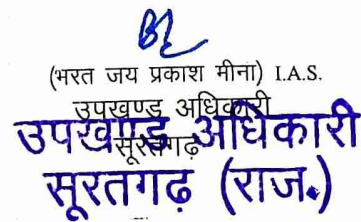 (भरत जय प्रकाश मीना) I.A.S.
उपखण्ड अधिकारी
सूरतगढ़
उपखण्ड अधिकारी
सूरतगढ़ (राज.)